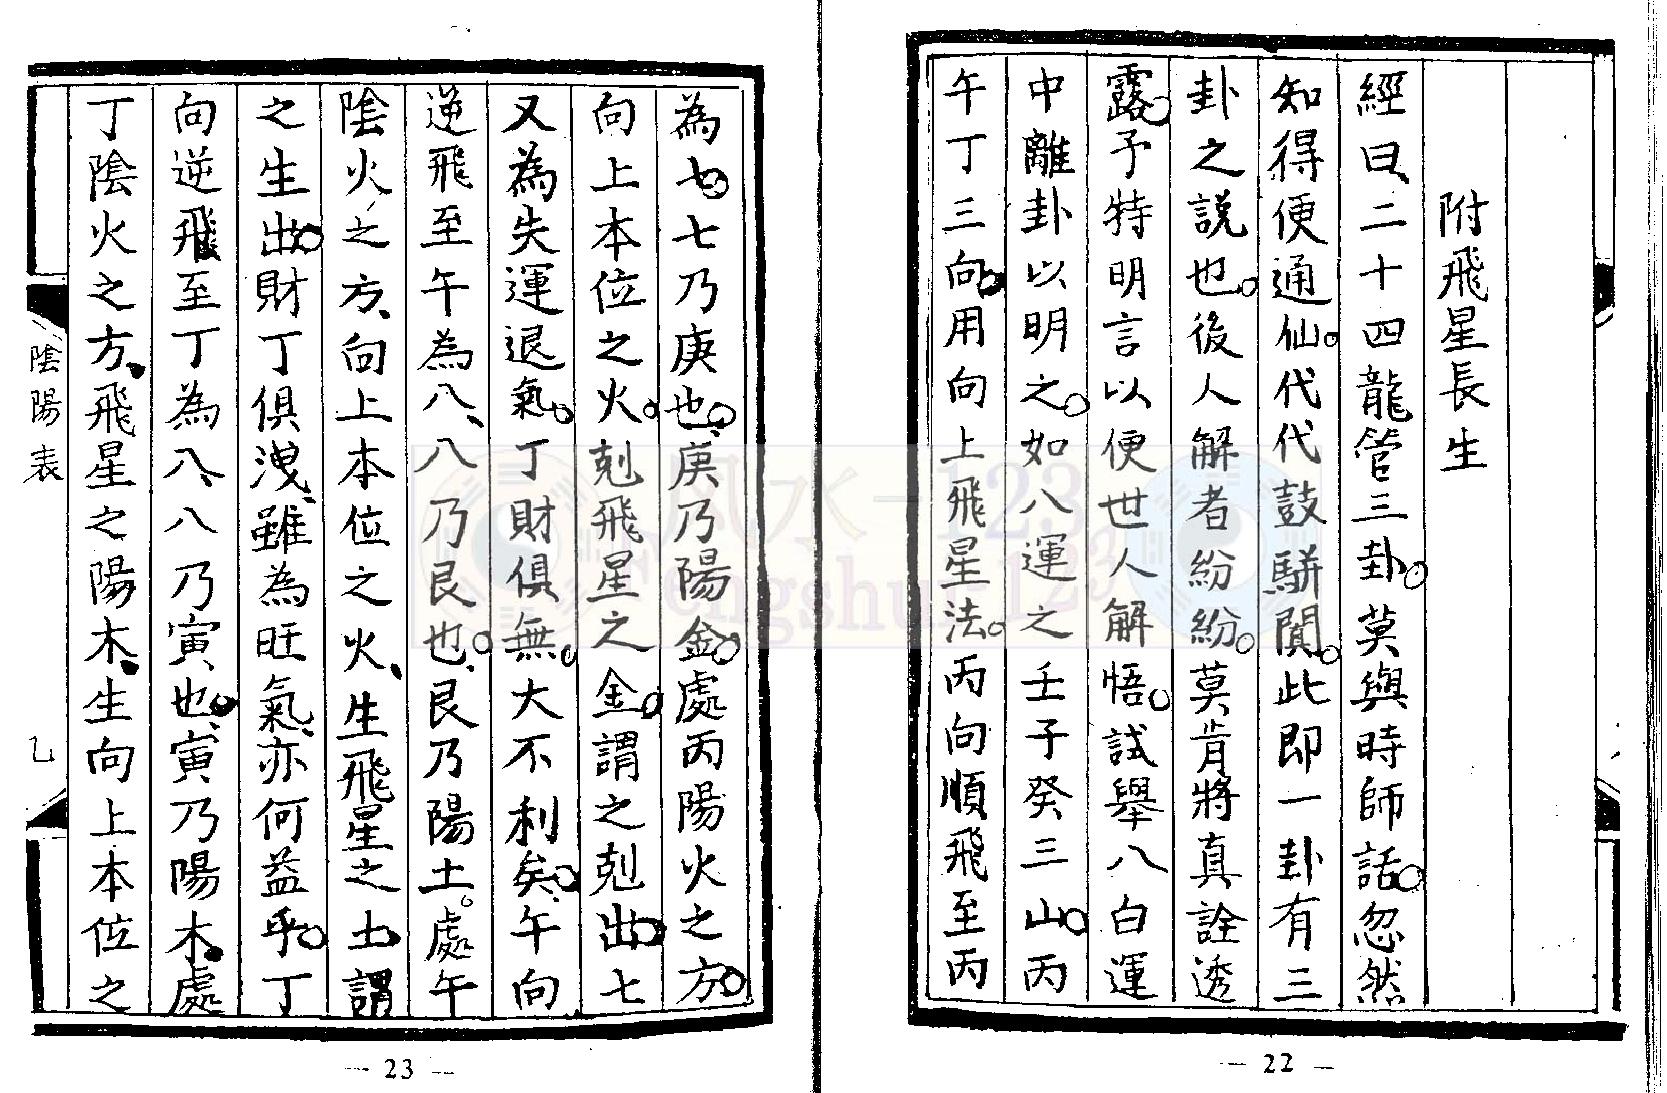 附飛星長生
經曰、二十四龍管三卦。莫與時師話。忽然
知得便通仙。代代鼓駢闐。此即一卦有三
卦之說也。後人解者紛紛。莫肯將真詮透
露。予特明言以便世人解悟。試舉八白運
中離卦以明之。如八運之壬子癸三山。丙
午丁三向。用向上飛星法。丙向順飛至丙
— 22 —
為七。七乃庚也。庚乃陽金。處丙陽火之方。
向上本位之火。剋飛星之金。謂之剋出。七
又為失運退氣。丁財俱無。大不利矣。午向
逆飛至午為八、八乃艮也。艮乃陽土。處午
陰火之方、向上本位之火、生飛星之土。謂
之生出。財丁俱洩、雖為旺氣、亦何益乎。丁
向逆飛至丁為八、八乃寅也。寅乃陽木。處
丁陰火之方。飛星之陽木。生向上本位之
陰陽表
乙
— 23 —
風水-123
Fengshui-123